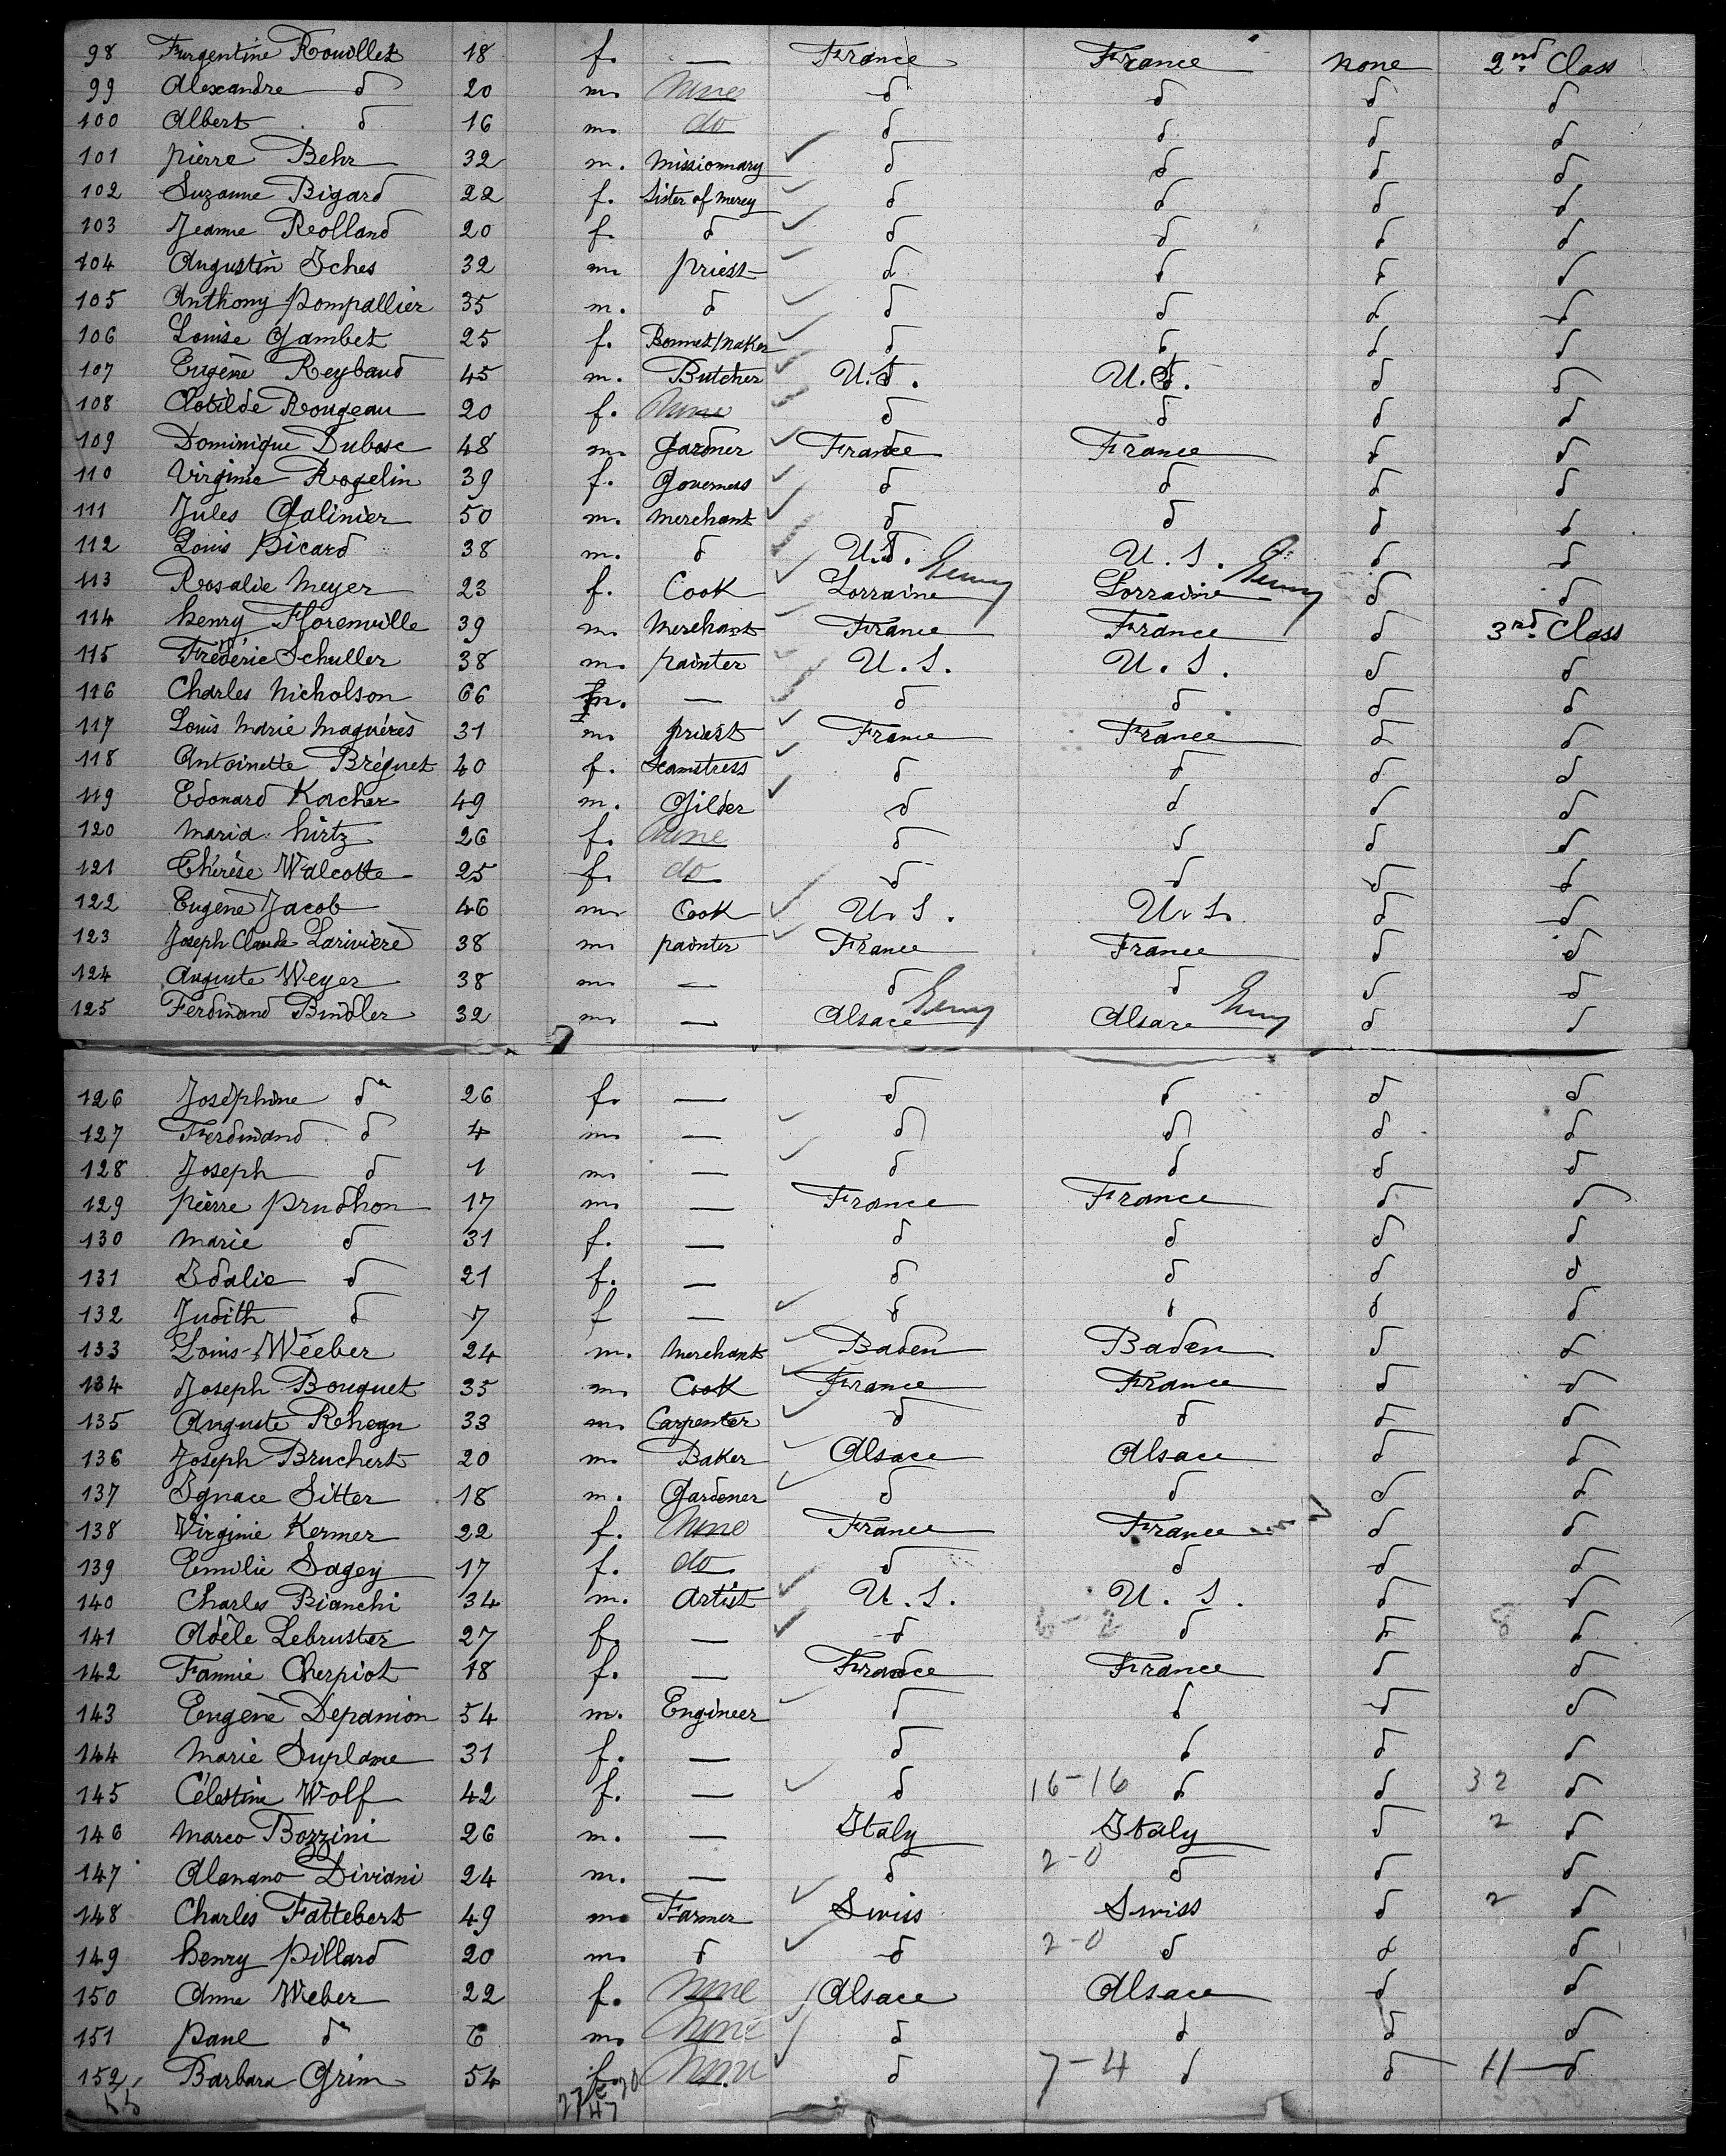 98 Furgentine Rouollet 18 f. — France France none 2nd Class
99 Alexandre d 20 m. None d d d d
100 Albert d 16 m. do d d d d
101 Pierre Behr 32 m. Missionnary d d d d
102 Suzanne Bigard 22 f. Sister of mercy d d d d
103 Jeanne Rolland 20 f. d d d d d
104 Augustin Iches 32 m. priest d d d d
105 Anthony Pompallier 35 m. d d d d d
106 Louise Gambet 25 f. Bonnet/maker d d d d
107 Eugène Reybaud 45 m. Butcher U.S. U.S. d d
108 Clotilde Rougeau 20 f. None d d d d
109 Dominique Dubosc 48 m. Gardner France France d d
110 Virginie Rogelin 39 f. Governess d d d d
111 Jules Galinier 50 m. Merchant d d d d
112 Louis Picard 38 m. d U.S. U.S. d d
113 Rosalie Meyer 23 f. Cook Lorraine Gemy Lorraine Gemy d d
114 Henry Florenville 39 m. Merchant France France d 3rd Class
115 Frédéric Schuller 38 m. painter U.S. U.S. d d
116 Charles Nicholson 66 m. — d d d d
117 Louis Marie Maguérès 31 m. priest France France d d
118 Antoinette Bréguet 40 f. Seamstress d d d d
119 Edouard Kacher 49 m. Gilder d d d d
120 Maria Hirtz 26 f. None d d d d
121 Thérèse Walcotte 25 f. do d d d d
122 Eugène Jacob 46 m. Cook U.S. U.S. d d
123 Joseph Claude Larivière 38 m. painter France France d d
124 Auguste Weyer 38 m. — d d d d
125 Ferdinand Bindler 32 m. — Alsace Gemy Alsace Gemy d d
126 Joséphine d 26 f. — d d d d
127 Ferdinand d 4 m. — d d d d
128 Joseph d 1 m. — d d d d
129 Pierre Prudhon 17 m. — France France d d
130 Marie d 31 f. — d d d d
131 Idalie d 21 f. — d d d d
132 Judith d 7 f — d d d d
133 Louis Wéeber 24 m. Merchant Baden Baden d d
134 Joseph Bouquet 35 m. Cook France France d d
135 Auguste Rhegn 33 m. Carpenter d d d d
136 Joseph Bruchert 20 m. Baker Alsace Alsace d d
137 Ignace Sitter 18 m. Gardener d d d d
138 Virginie Kermer 22 f. None France France d d
139 Emilie Sagey 17 f. do d d d d
140 Charles Bianchi 34 m. Artist U.S. U.S. d d
141 Adèle Lebruster 27 f. — d 6-2 d d 8 d
142 Fannie Cherpiot 18 f. — France France d d
143 Eugène Depanion 54 m. Engineer d d d d
144 Marie Suplane 31 f. — d d d d
145 Célestine Wolf 42 f. — d 16-16 d d 32 d
146 Marco Bozzini 26 m. — Italy Italy d 2 d
147 Alamano Diviani 24 m. — d 2-0 d d d
148 Charles Fattebert 49 m. Farmer Swiss Swiss d 2 d
149 Henry Pillard 20 m. d d 2-0 d d d
150 Anne Weber 22 f. None Alsace Alsace d d
151 Paul d 6 m. None d d d d
152 Barbara Grim 54 f. None d 7-4 d d 11 d
55 27 20
47